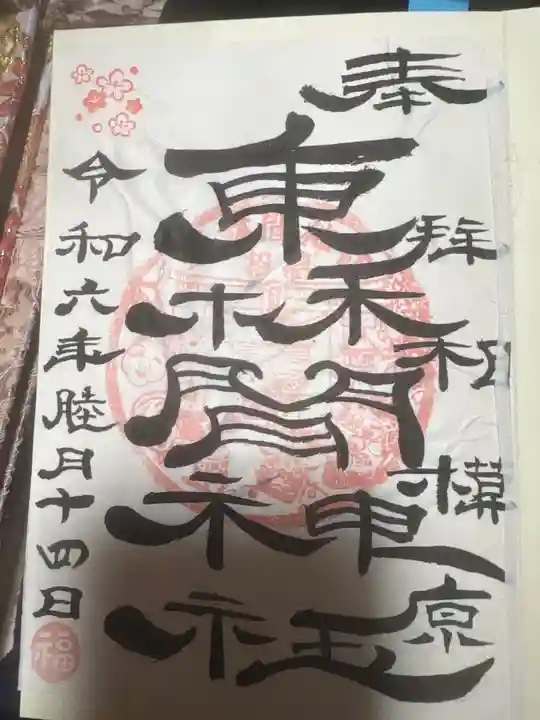 奉拝 相模原
東林間神社
令和六年睦月十四日
福